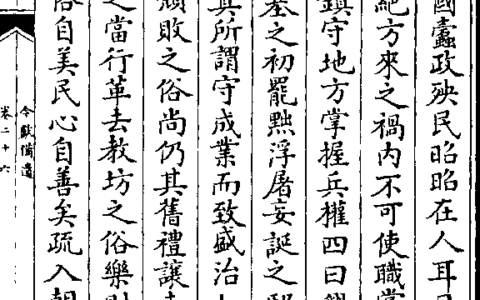 國蠹政殃民昭昭在人耳目
絕方來之禍内不可使職掌
鎮守地方掌握兵權四曰
基之初罷黜浮屠妄誕之
其所謂守成業而致盛治
頹敗之俗尚仍其舊禮讓
之當行革去教坊之俗樂則
俗自美民心自善矣疏入朝
今獻備遺
卷二十六